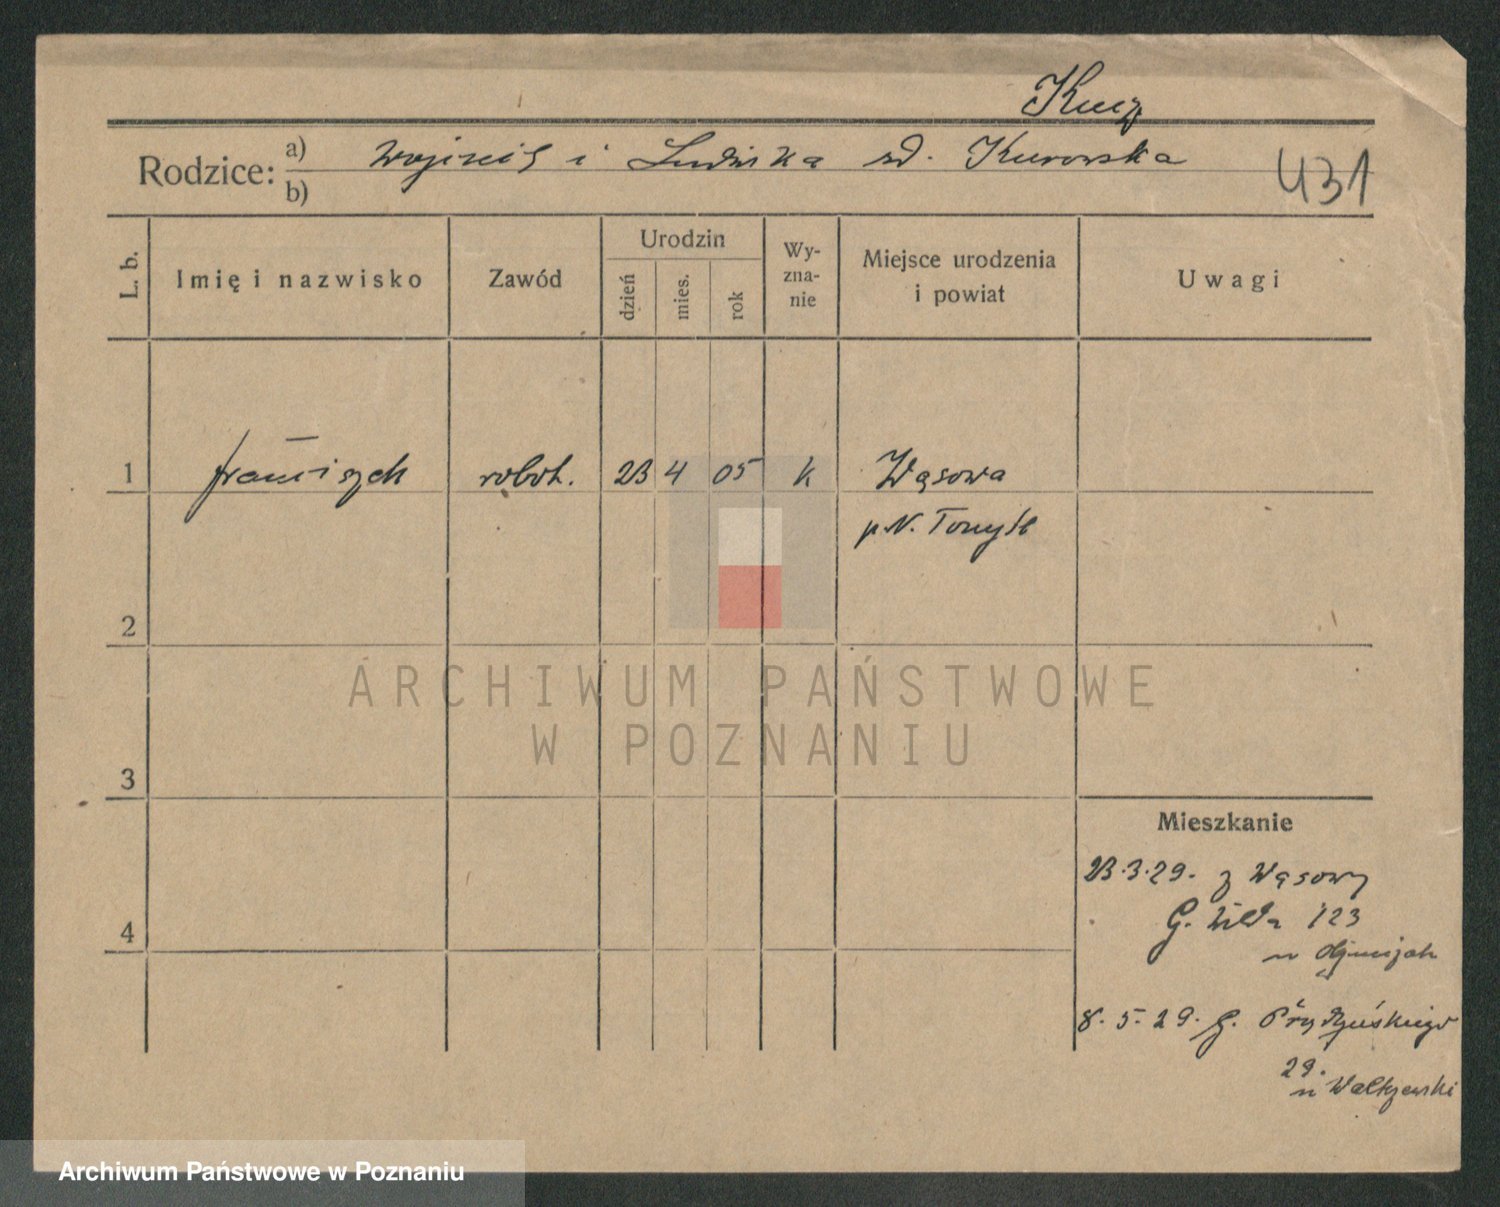 Kucz
Rodzice: a) Wojciech i Ludwika zd. Kurowska
b)
431
L. b.
Imię i nazwisko
Zawód
Urodzin
dzień
mies.
rok
Wy-
zna-
nie
Miejsce urodzenia
i powiat
Uwagi
1 Franciszek robot. 23 4 05 k Wąsowa
p. N. Tomyśl
2
3
4
Mieszkanie
23.3.29. z Wąsowy
G. Wilda 123
8.5.29. G. Prądzyńskiego
29.
ARCHIWUM PAŃSTWOWE
W POZNANIU
Archiwum Państwowe w Poznaniu